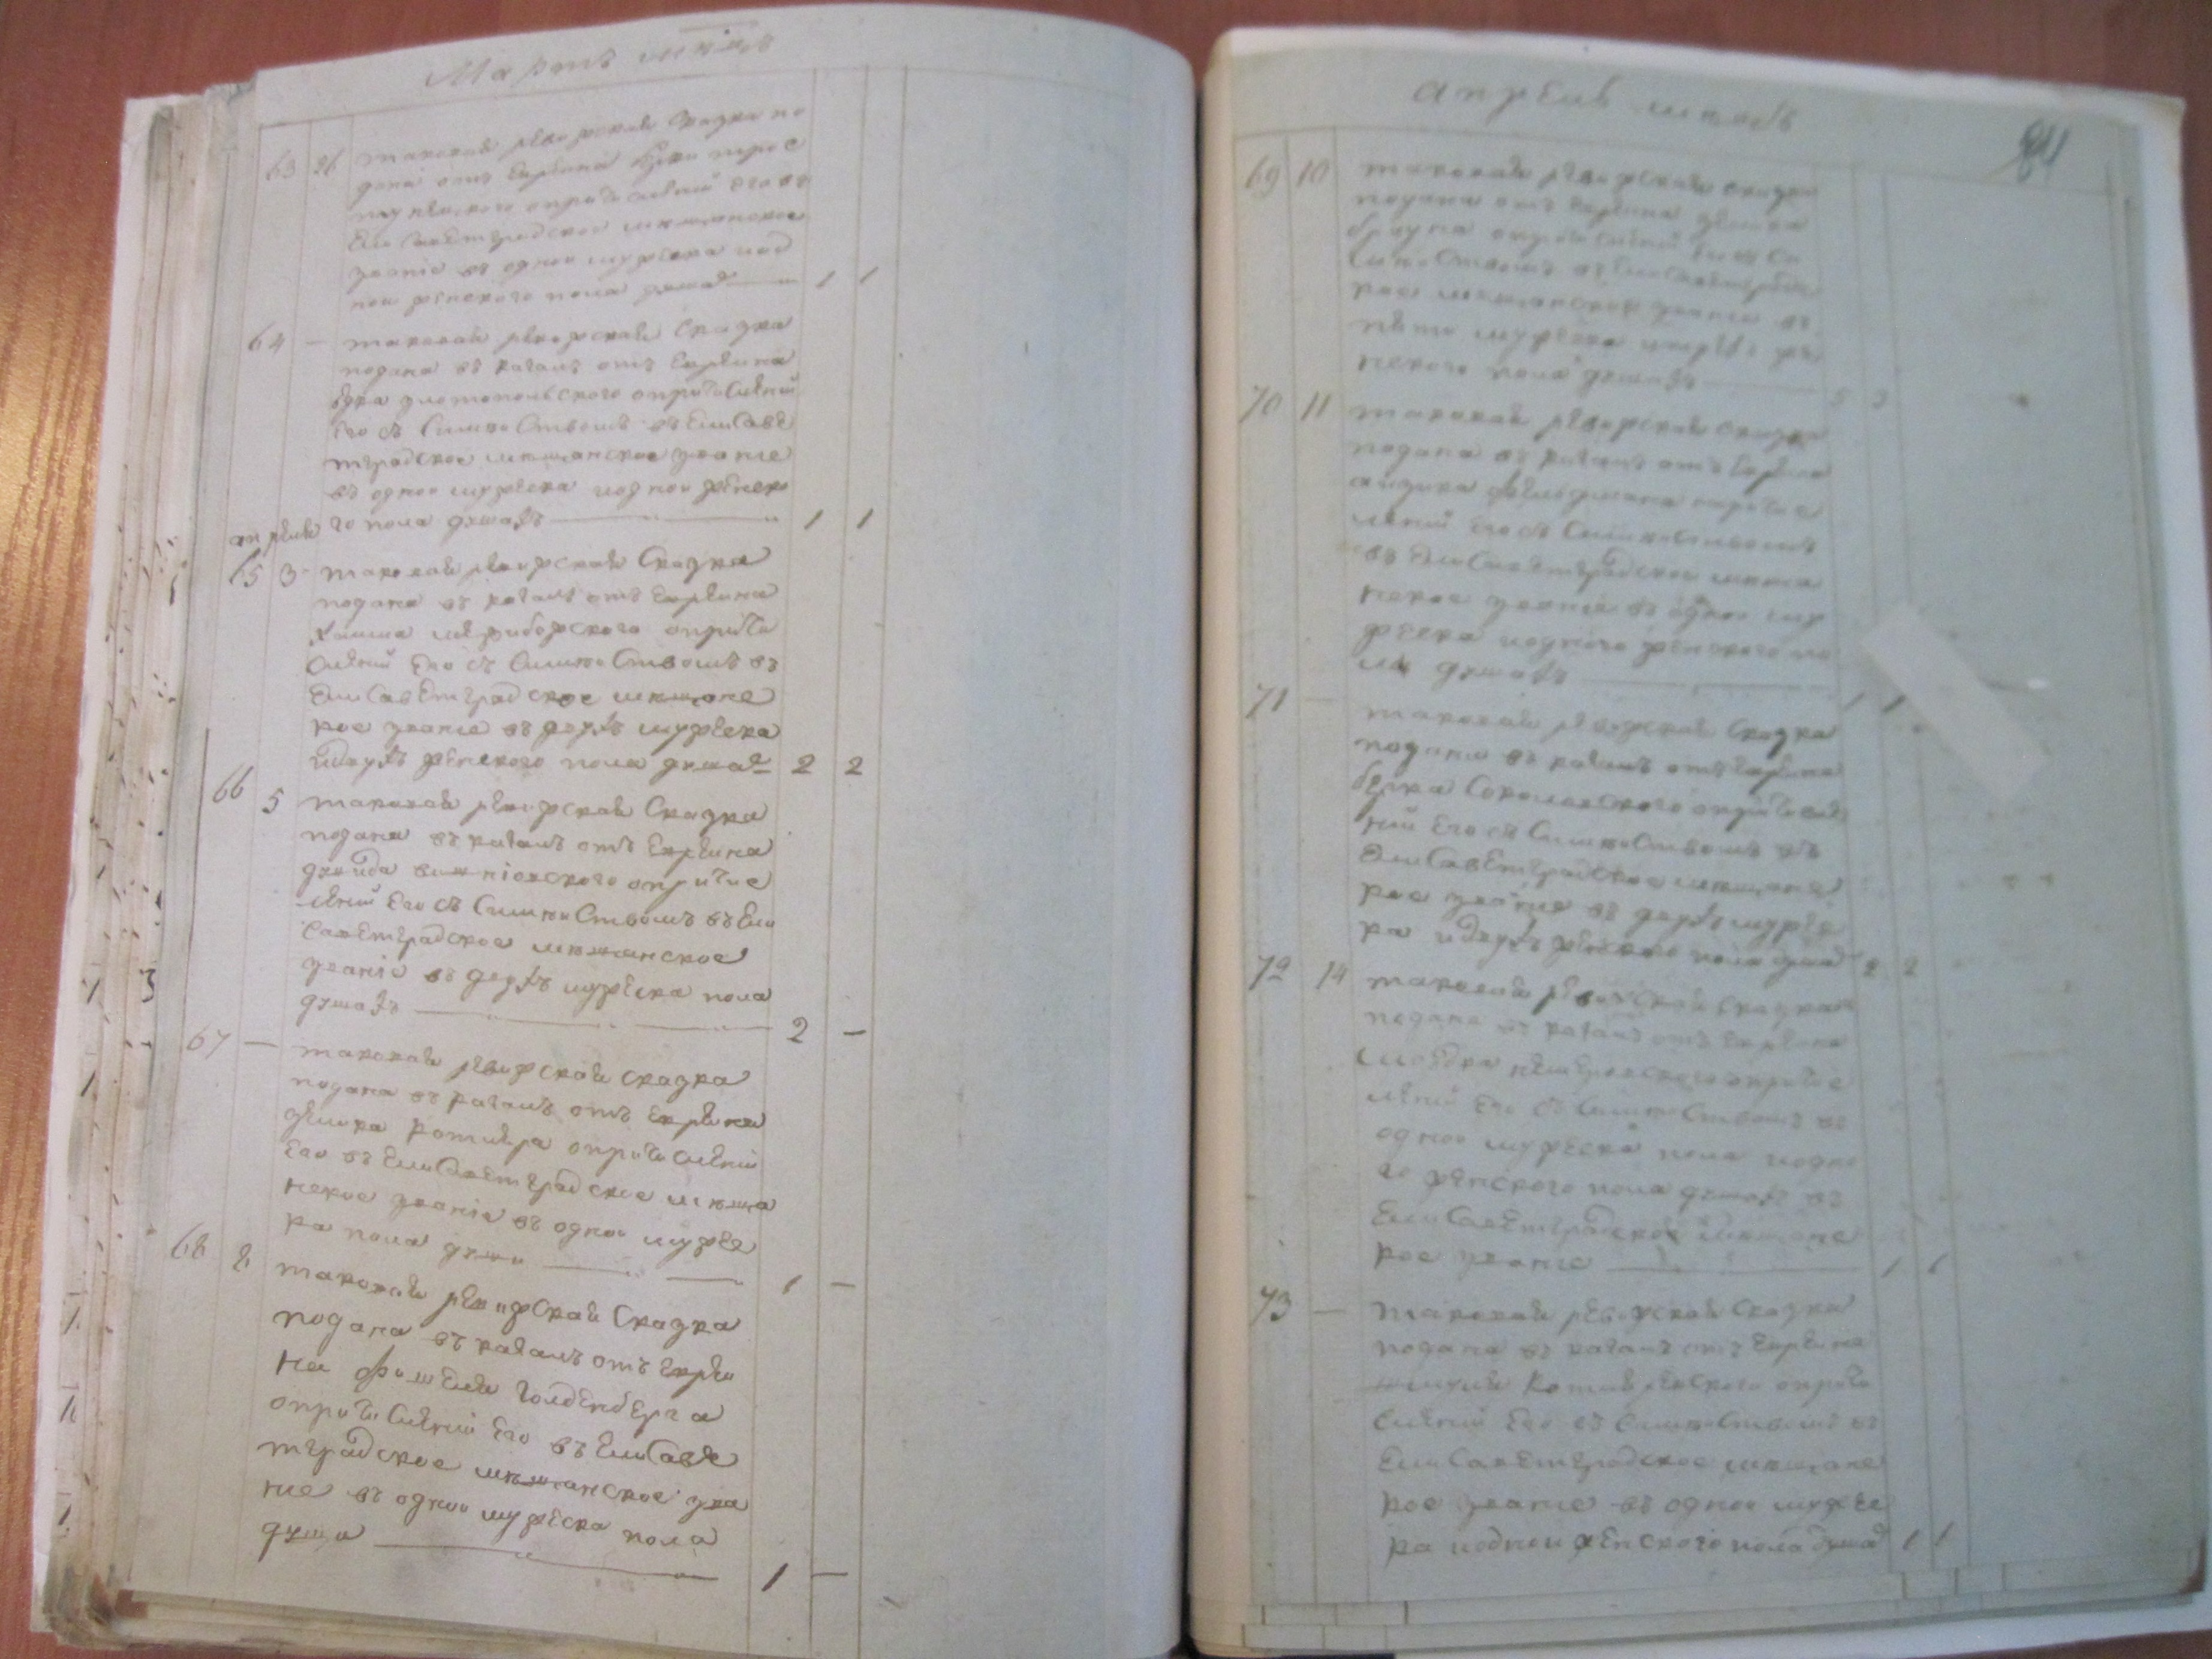 Мартъ мѣсяцъ
63 26 таковая ревизская сказка по
дана отъ еврѣина
о причисленіи его въ
Елисаветградское мѣщанское
званіе въ одной мужеска и од
ной женского пола душа 1 1
64 — таковая ревизская сказка
подана въ кагалъ отъ еврѣина
Ицка Златопольского о причисленіи
его съ семействомъ въ Елисаве
тградское мѣщанское званіе
въ одной мужеска и одной женско
го пола душахъ 1 1
апрѣля
65 3 таковая ревизская сказка
подана въ кагалъ отъ еврѣина
Хаима о причи
сленіи его съ семействомъ въ
Елисаветградское мѣщанс
кое званіе въ двухъ мужеска
и двухъ женского пола душахъ 2 2
66 5 таковая ревизская сказка
подана въ кагалъ отъ еврѣина
Давида о причис
леніи его съ семействомъ въ Ели
саветградское мѣщанское
званіе въ двухъ мужеска пола
душахъ 2 —
67 — таковая ревизская сказка
подана въ кагалъ отъ еврѣина
о причисленіи
его въ Елисаветградское мѣща
нское званіе въ одной мужес
ка пола души 1 —
68 8 таковая ревизская сказка
подана въ кагалъ отъ еврѣи
на Фишеля Голденберга
о причисленіи его въ Елисаве
тградское мѣщанское зва
ніе въ одной мужеска пола
души 1 —
апрель мѣсяцъ
84
69 10 таковая ревизская сказка
подана отъ еврѣина
о причисленіи его съ се
мействомъ въ Елисаветградс
кое мѣщанское званіе въ
пяти мужеска и трехъ же
нского пола душахъ 5 3
70 11 таковая ревизская сказка
подана въ кагалъ отъ еврѣина
Айзика о причис
леніи его съ семействомъ
въ Елисаветградское мѣща
нское званіе въ одной му
жеска и одного женского по
ла душахъ 1 1
71 — таковая ревизская сказка
подана въ кагалъ отъ еврѣина
Берка Соколовского о причисле
ніи его съ семействомъ въ
Елисаветградское мѣщанс
кое званіе въ двухъ мужес
ка и двухъ женского пола душа 2 2
72 14 таковая ревизская сказка
подана въ кагалъ отъ еврѣина
о причис
леніи его съ семействомъ въ
одной мужеска пола и одно
го женского пола душахъ въ
Елисаветградское мѣщанс
кое званіе 1 1
73 — таковая ревизская сказка
подана въ кагалъ отъ еврѣина
о причи
сленіи его съ семействомъ въ
Елисаветградское мѣщанс
кое званіе въ одной мужес
ка и одной женского пола душа 1 1